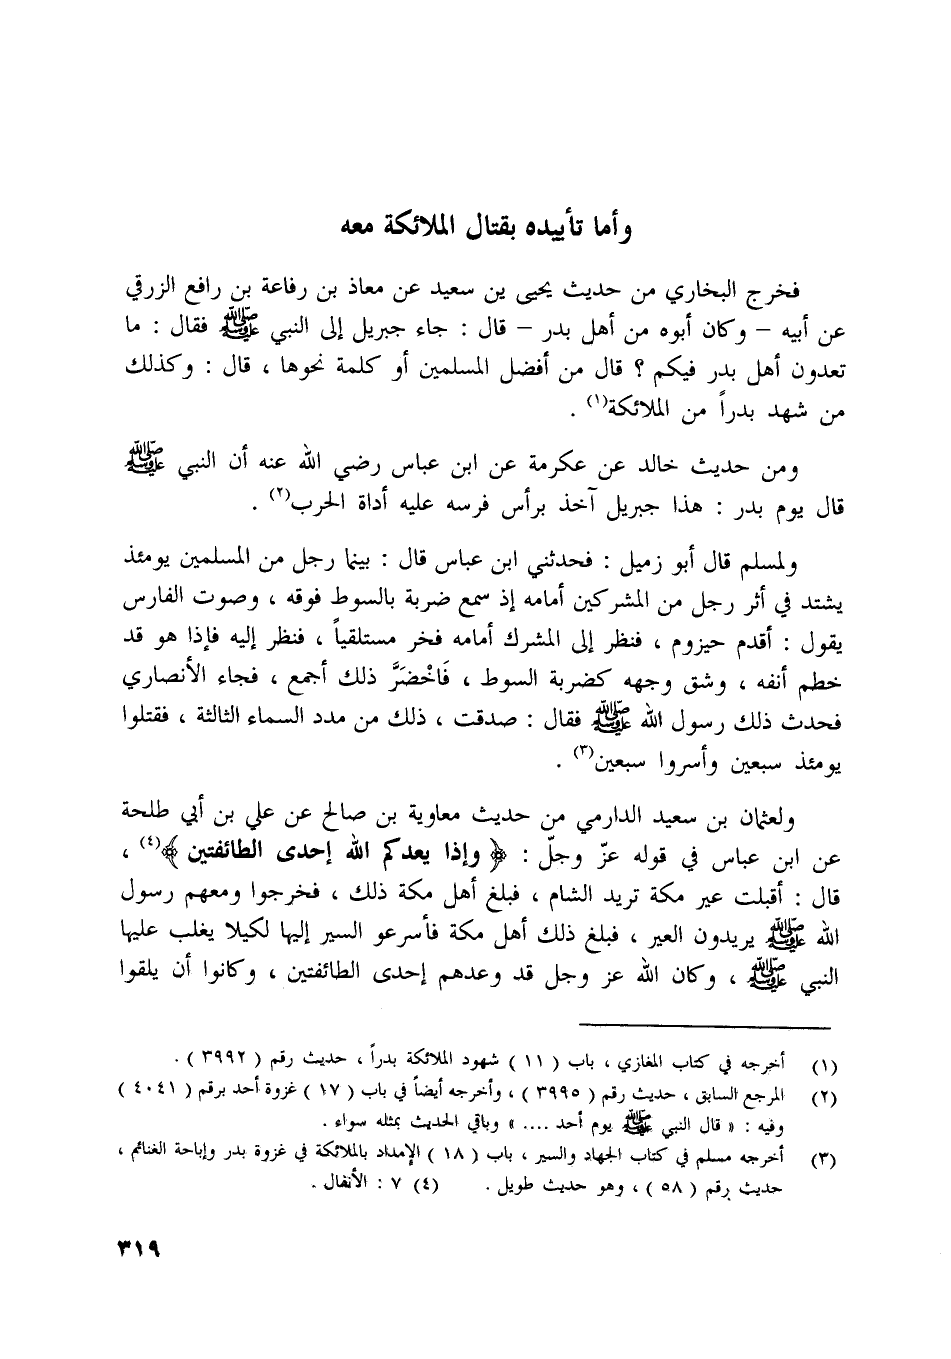 وأما تأييده بقتال الملائكة معه
فخرج البخاري من حديث يحيى ين سعيد عن معاذ بن رفاعة بن رافع الزرقي
عن أبيه – وكان أبوه من أهل بدر – قال : جاء جبريل إلى النبي ﷺ فقال : ما
تعدون أهل بدر فيكم ؟ قال من أفضل المسلمين أو كلمة نحوها ، قال : وكذلك
من شهد بدراً من الملائكة(١) .
ومن حديث خالد عن عكرمة عن ابن عباس رضي الله عنه أن النبي ﷺ
قال يوم بدر : هذا جبريل آخذ برأس فرسه عليه أداة الحرب(٢) .
ولمسلم قال أبو زميل : فحدثني ابن عباس قال : بينما رجل من المسلمين يومئذ
يشتد في أثر رجل من المشركين أمامه إذ سمع ضربة بالسوط فوقه ، وصوت الفارس
يقول : أقدم حيزوم ، فنظر إلى المشرك أمامه فخر مستلقياً ، فنظر إليه فإذا هو قد
خطم أنفه ، وشق وجهه كضربة السوط ، فَاخْضَرَّ ذلك أجمع ، فجاء الأنصاري
فحدث ذلك رسول الله ﷺ فقال : صدقت ، ذلك من مدد السماء الثالثة ، فقتلوا
يومئذ سبعين وأسروا سبعين(٣) .
ولعثمان بن سعيد الدارمي من حديث معاوية بن صالح عن علي بن أبي طلحة
عن ابن عباس في قوله عزّ وجلّ : ﴿ وإذا يعدكم الله إحدى الطائفتين ﴾(٤) ،
قال : أقبلت عير مكة تريد الشام ، فبلغ أهل مكة ذلك ، فخرجوا ومعهم رسول
الله ﷺ يريدون العير ، فبلغ ذلك أهل مكة فأسرعو السير إليها لكيلا يغلب عليها
النبي ﷺ ، وكان الله عز وجل قد وعدهم إحدى الطائفتين ، وكانوا أن يلقوا
(١) أخرجه في كتاب المغازي ، باب ( ١١ ) شهود الملائكة بدراً ، حديث رقم ( ٣٩٩٢ ) .
(٢) المرجع السابق ، حديث رقم ( ٣٩٩٥ ) ، وأخرجه أيضاً في باب ( ١٧ ) غزوة أحد برقم ( ٤٠٤١ )
وفيه : « قال النبي ﷺ يوم أحد .... » وباقي الحديث بمثله سواء .
(٣) أخرجه مسلم في كتاب الجهاد والسير ، باب ( ١٨ ) الإمداد بالملائكة في غزوة بدر وإباحة الغنائم ،
حديث رقم ( ٥٨ ) ، وهو حديث طويل . (٤) ٧ : الأنفال .
٣١٩